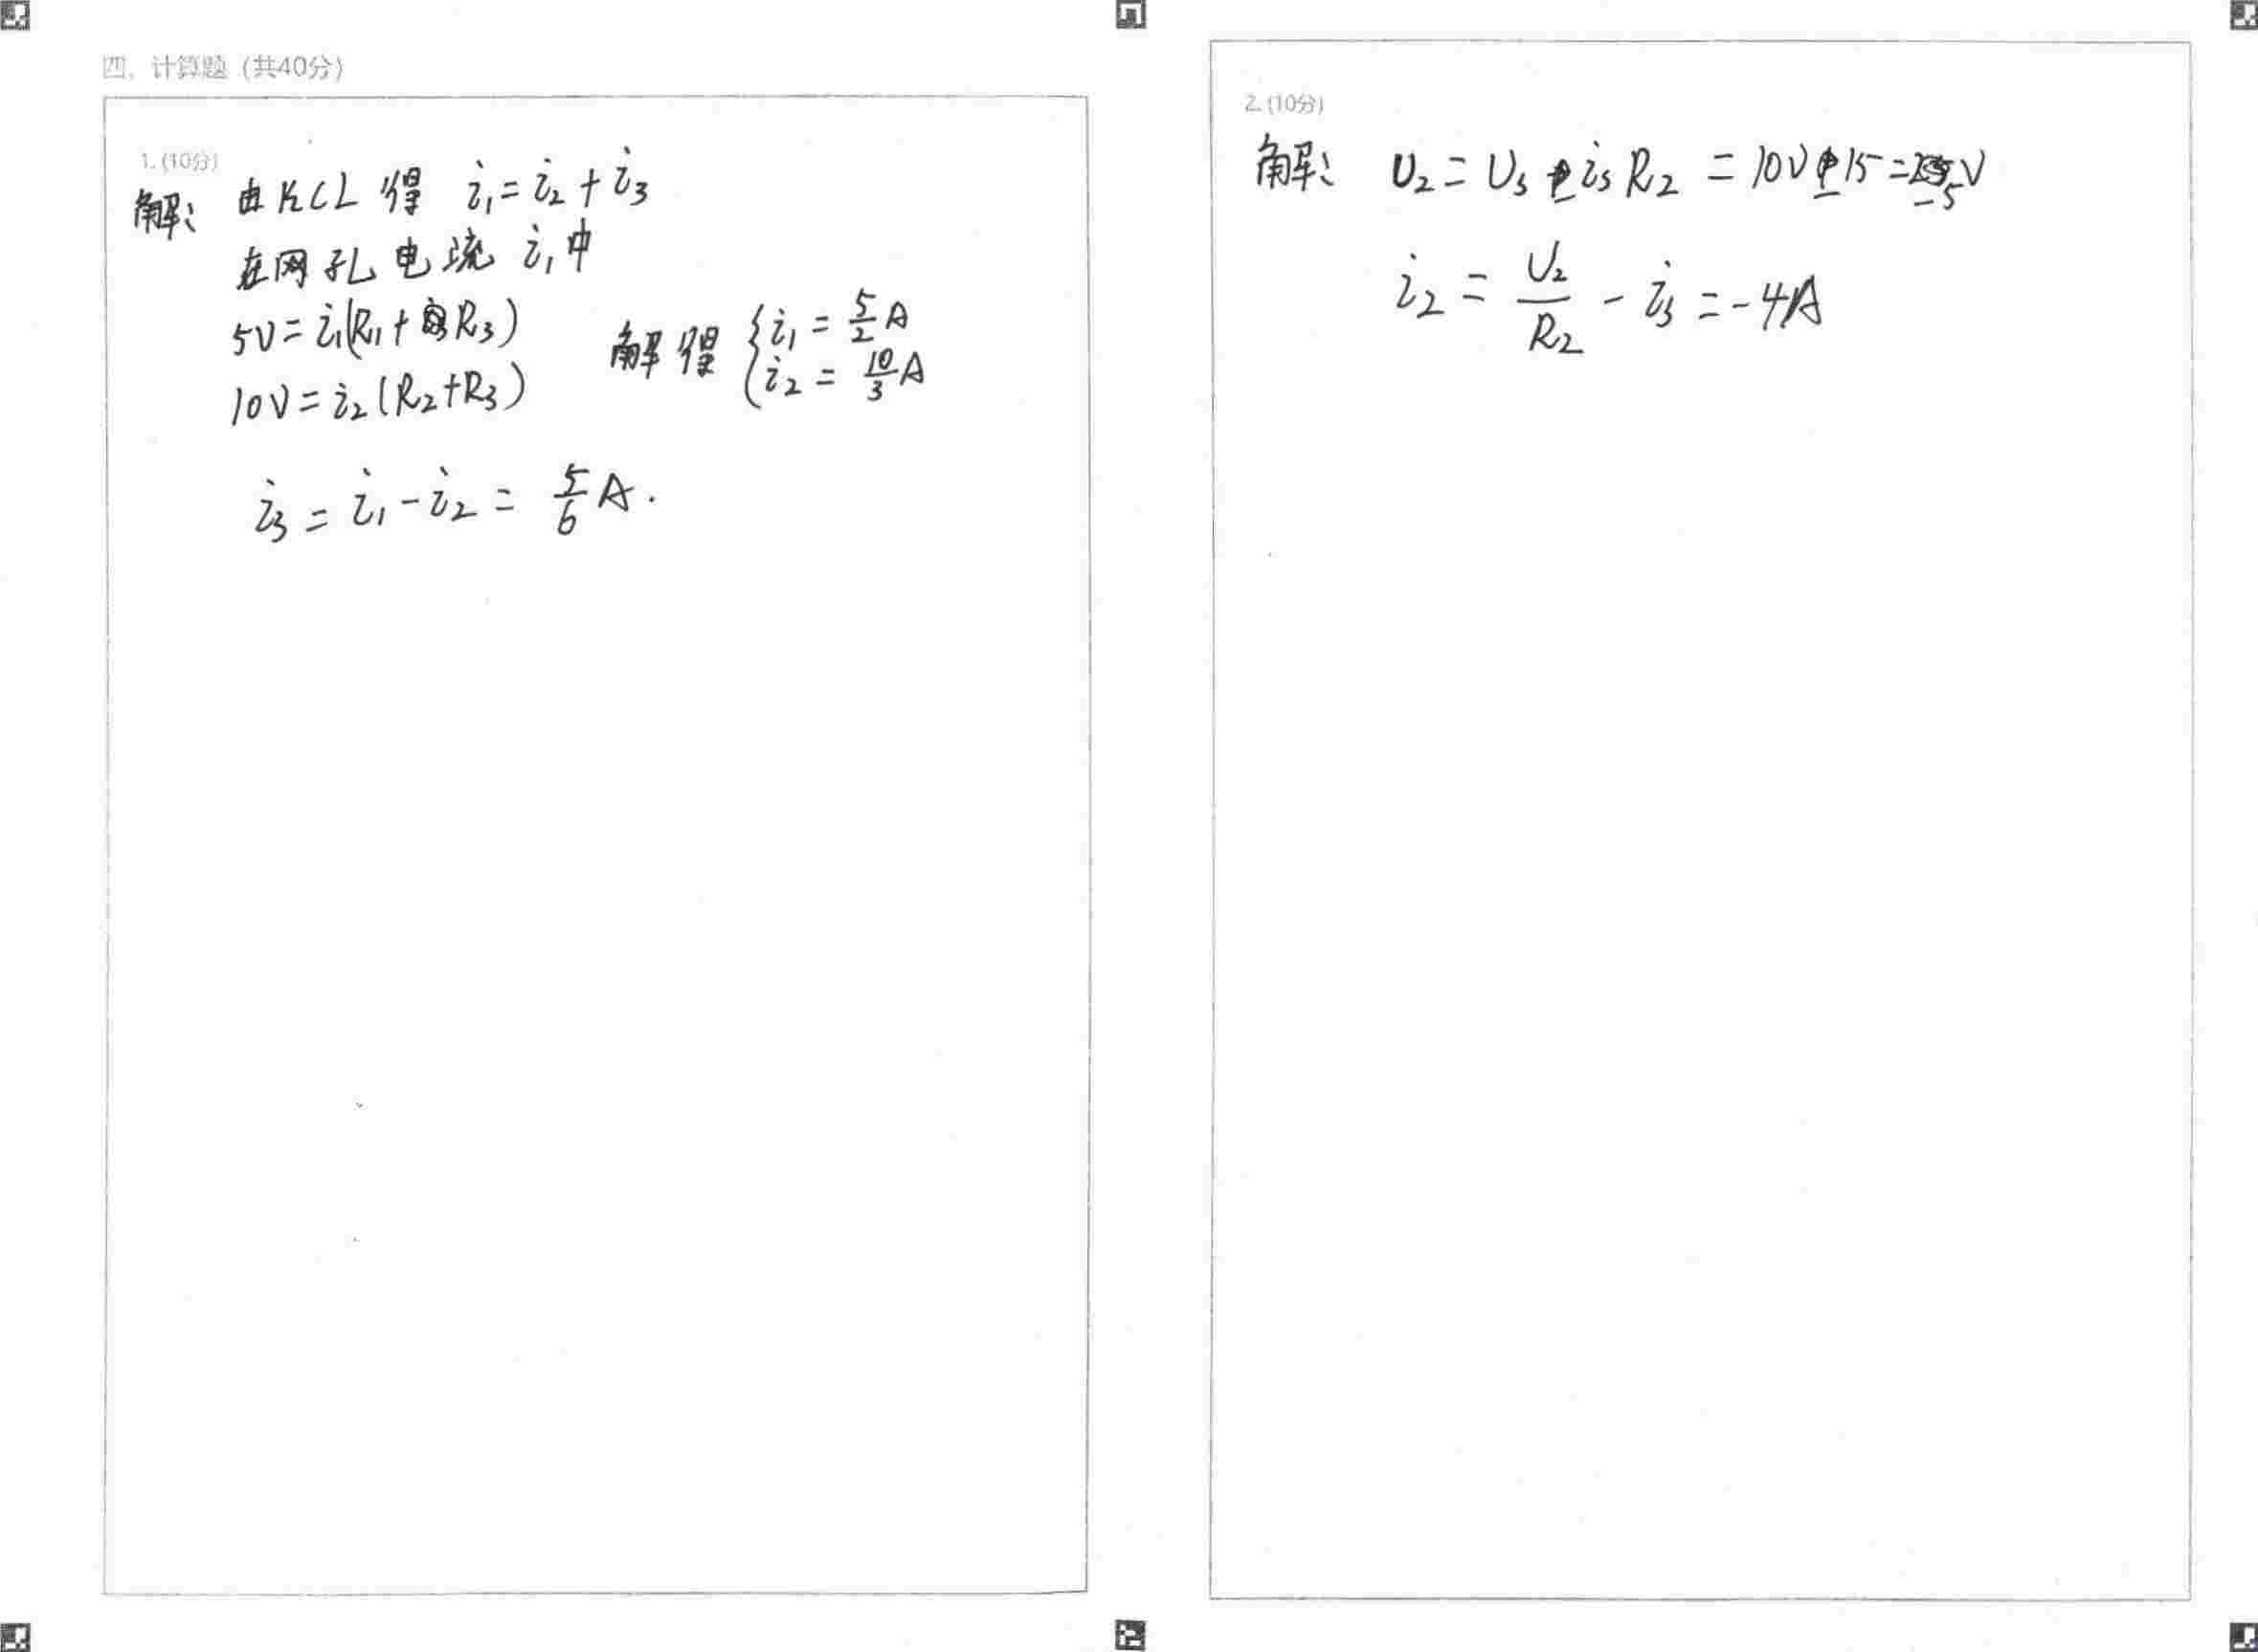 四、计算题（共40分）
1. (10分)
解： 由KCL得 i₁=i₂+i₃
在网孔电流 i₁中
5V=i₁(R₁+R₃)
10V=i₂(R₂+R₃)
解得 { i₁=5/2 A
i₂=10/3 A
i₃=i₁-i₂=5/6 A.
2. (10分)
解： U₂=Us-isR₂=10V-15=-5V
i₂=U₂/R₂-is=-4A